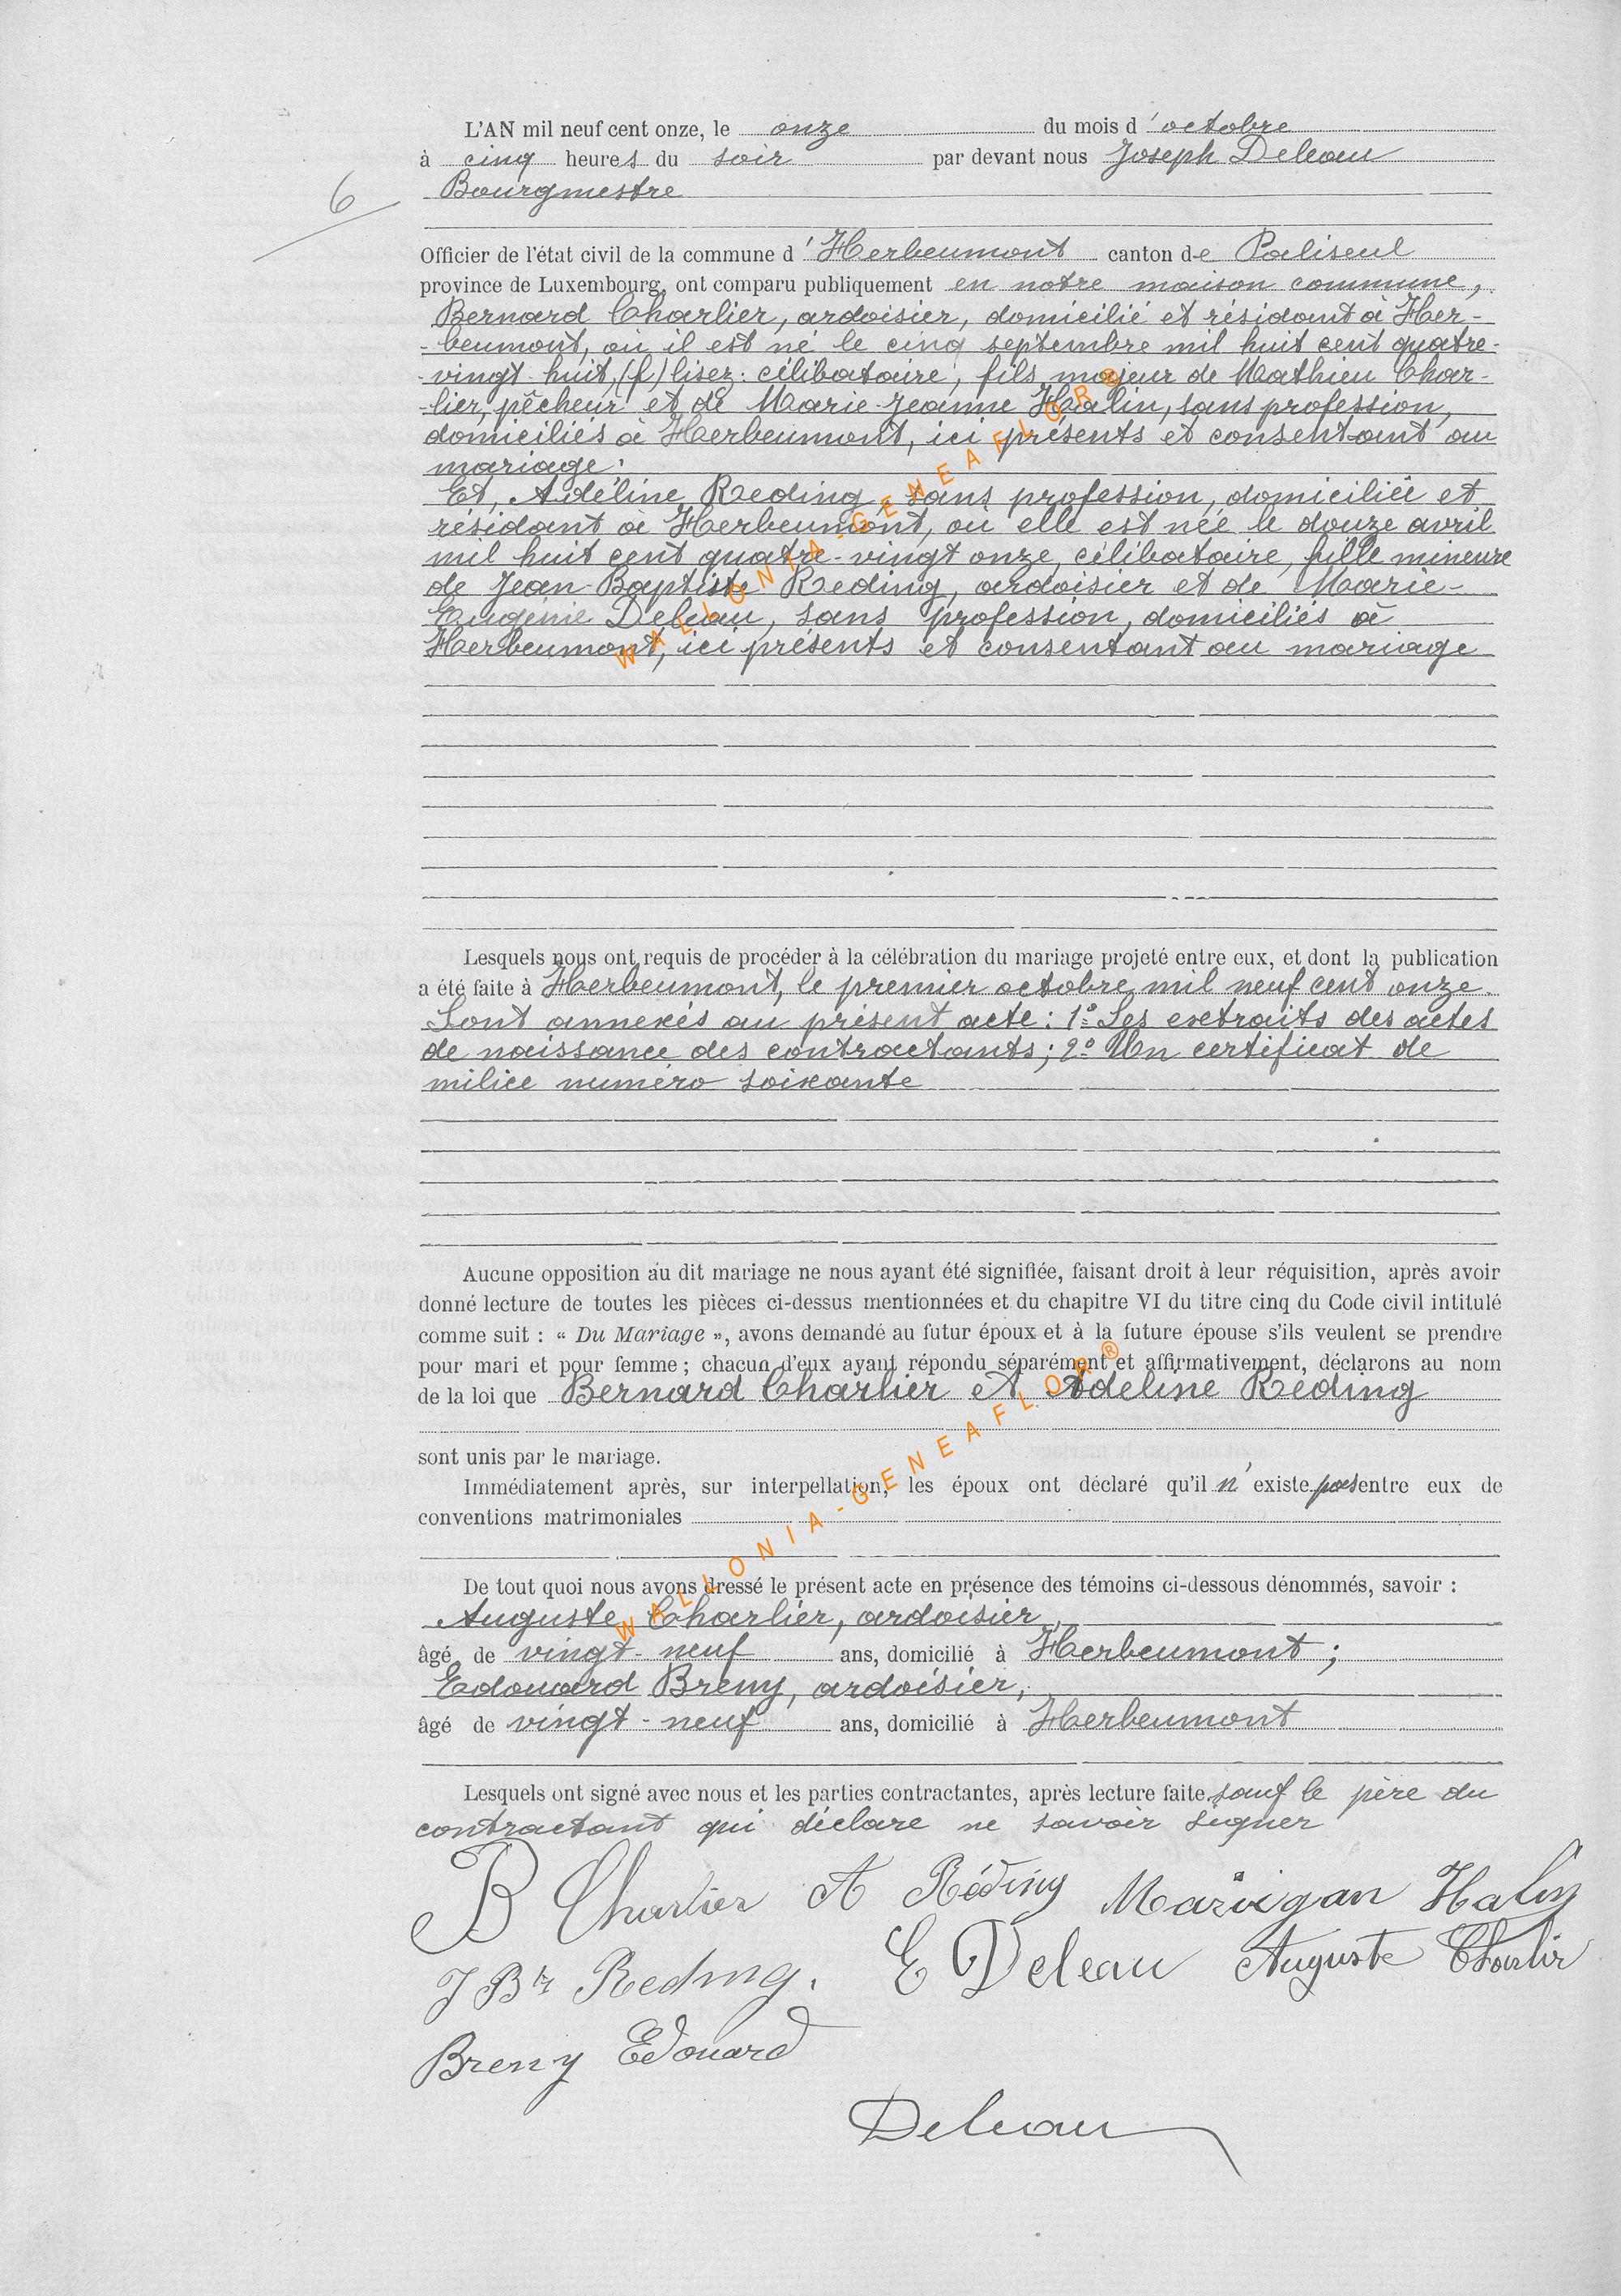 L'AN mil neuf cent onze, le onze du mois d'octobre
à cinq heures du soir par devant nous Joseph Deleau
Bourgmestre
6
Officier de l'état civil de la commune d'Herbeumont canton de Paliseul
province de Luxembourg, ont comparu publiquement en notre maison commune,
Bernard Charlier, ardoisier, domicilié et résidant à Her-
-beumont, où il est né le cinq septembre mil huit cent quatre-
-vingt-huit, (f) lisez: célibataire, fils majeur de Mathieu Char-
-lier, pêcheur et de Marie-Jeanne Halin, sans profession,
domiciliés à Herbeumont, ici présents et consentant au
mariage.
Et, Adéline Reding, sans profession, domiciliée et
résidant à Herbeumont, où elle est née le douze avril
mil huit cent quatre-vingt onze, célibataire, fille mineure
de Jean-Baptiste Reding, ardoisier et de Marie-
Eugénie Deleau, sans profession, domiciliés à
Herbeumont, ici présents et consentant au mariage
WALLONIA-GENEAFLOR®
Lesquels nous ont requis de procéder à la célébration du mariage projeté entre eux, et dont la publication
a été faite à Herbeumont, le premier octobre mil neuf cent onze.
Sont annexés au présent acte: 1° Les extraits des actes
de naissance des contractants; 2° Un certificat de
milice numéro soixante
Aucune opposition au dit mariage ne nous ayant été signifiée, faisant droit à leur réquisition, après avoir
donné lecture de toutes les pièces ci-dessus mentionnées et du chapitre VI du titre cinq du Code civil intitulé
comme suit : « Du Mariage », avons demandé au futur époux et à la future épouse s'ils veulent se prendre
pour mari et pour femme ; chacun d'eux ayant répondu séparément et affirmativement, déclarons au nom
de la loi que Bernard Charlier et Adeline Reding
sont unis par le mariage.
Immédiatement après, sur interpellation, les époux ont déclaré qu'il n'existe pas entre eux de
conventions matrimoniales
WALLONIA-GENEAFLOR®
De tout quoi nous avons dressé le présent acte en présence des témoins ci-dessous dénommés, savoir :
Auguste Charlier, ardoisier,
âgé de vingt-neuf ans, domicilié à Herbeumont ;
Edouard Breny, ardoisier,
âgé de vingt-neuf ans, domicilié à Herbeumont
Lesquels ont signé avec nous et les parties contractantes, après lecture faite sauf le père du
contractant qui déclare ne savoir signer
B Charlier A Réding Marigan Halin
J Bte Reding. E Deleau Auguste Charlier
Breny Edouard
Deleau